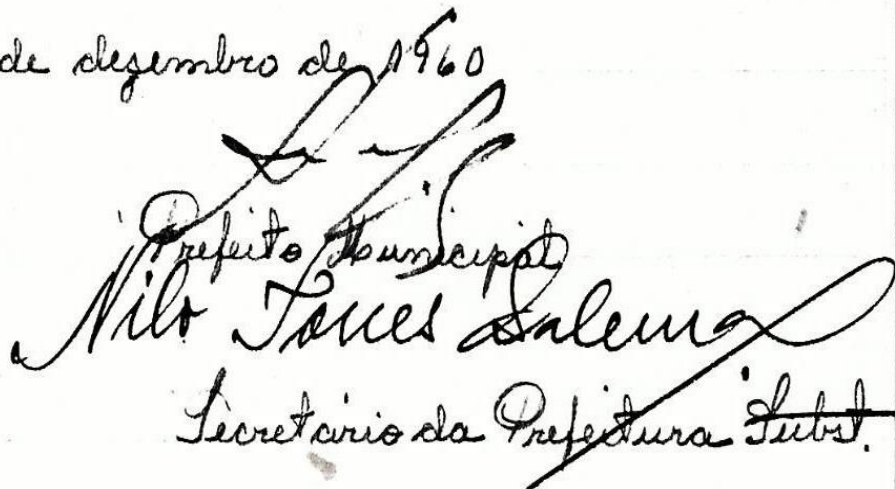 de dezembro de 1960
Prefeito Municipal
Nilo Torres Salema
Secretário da Prefeitura Subst.